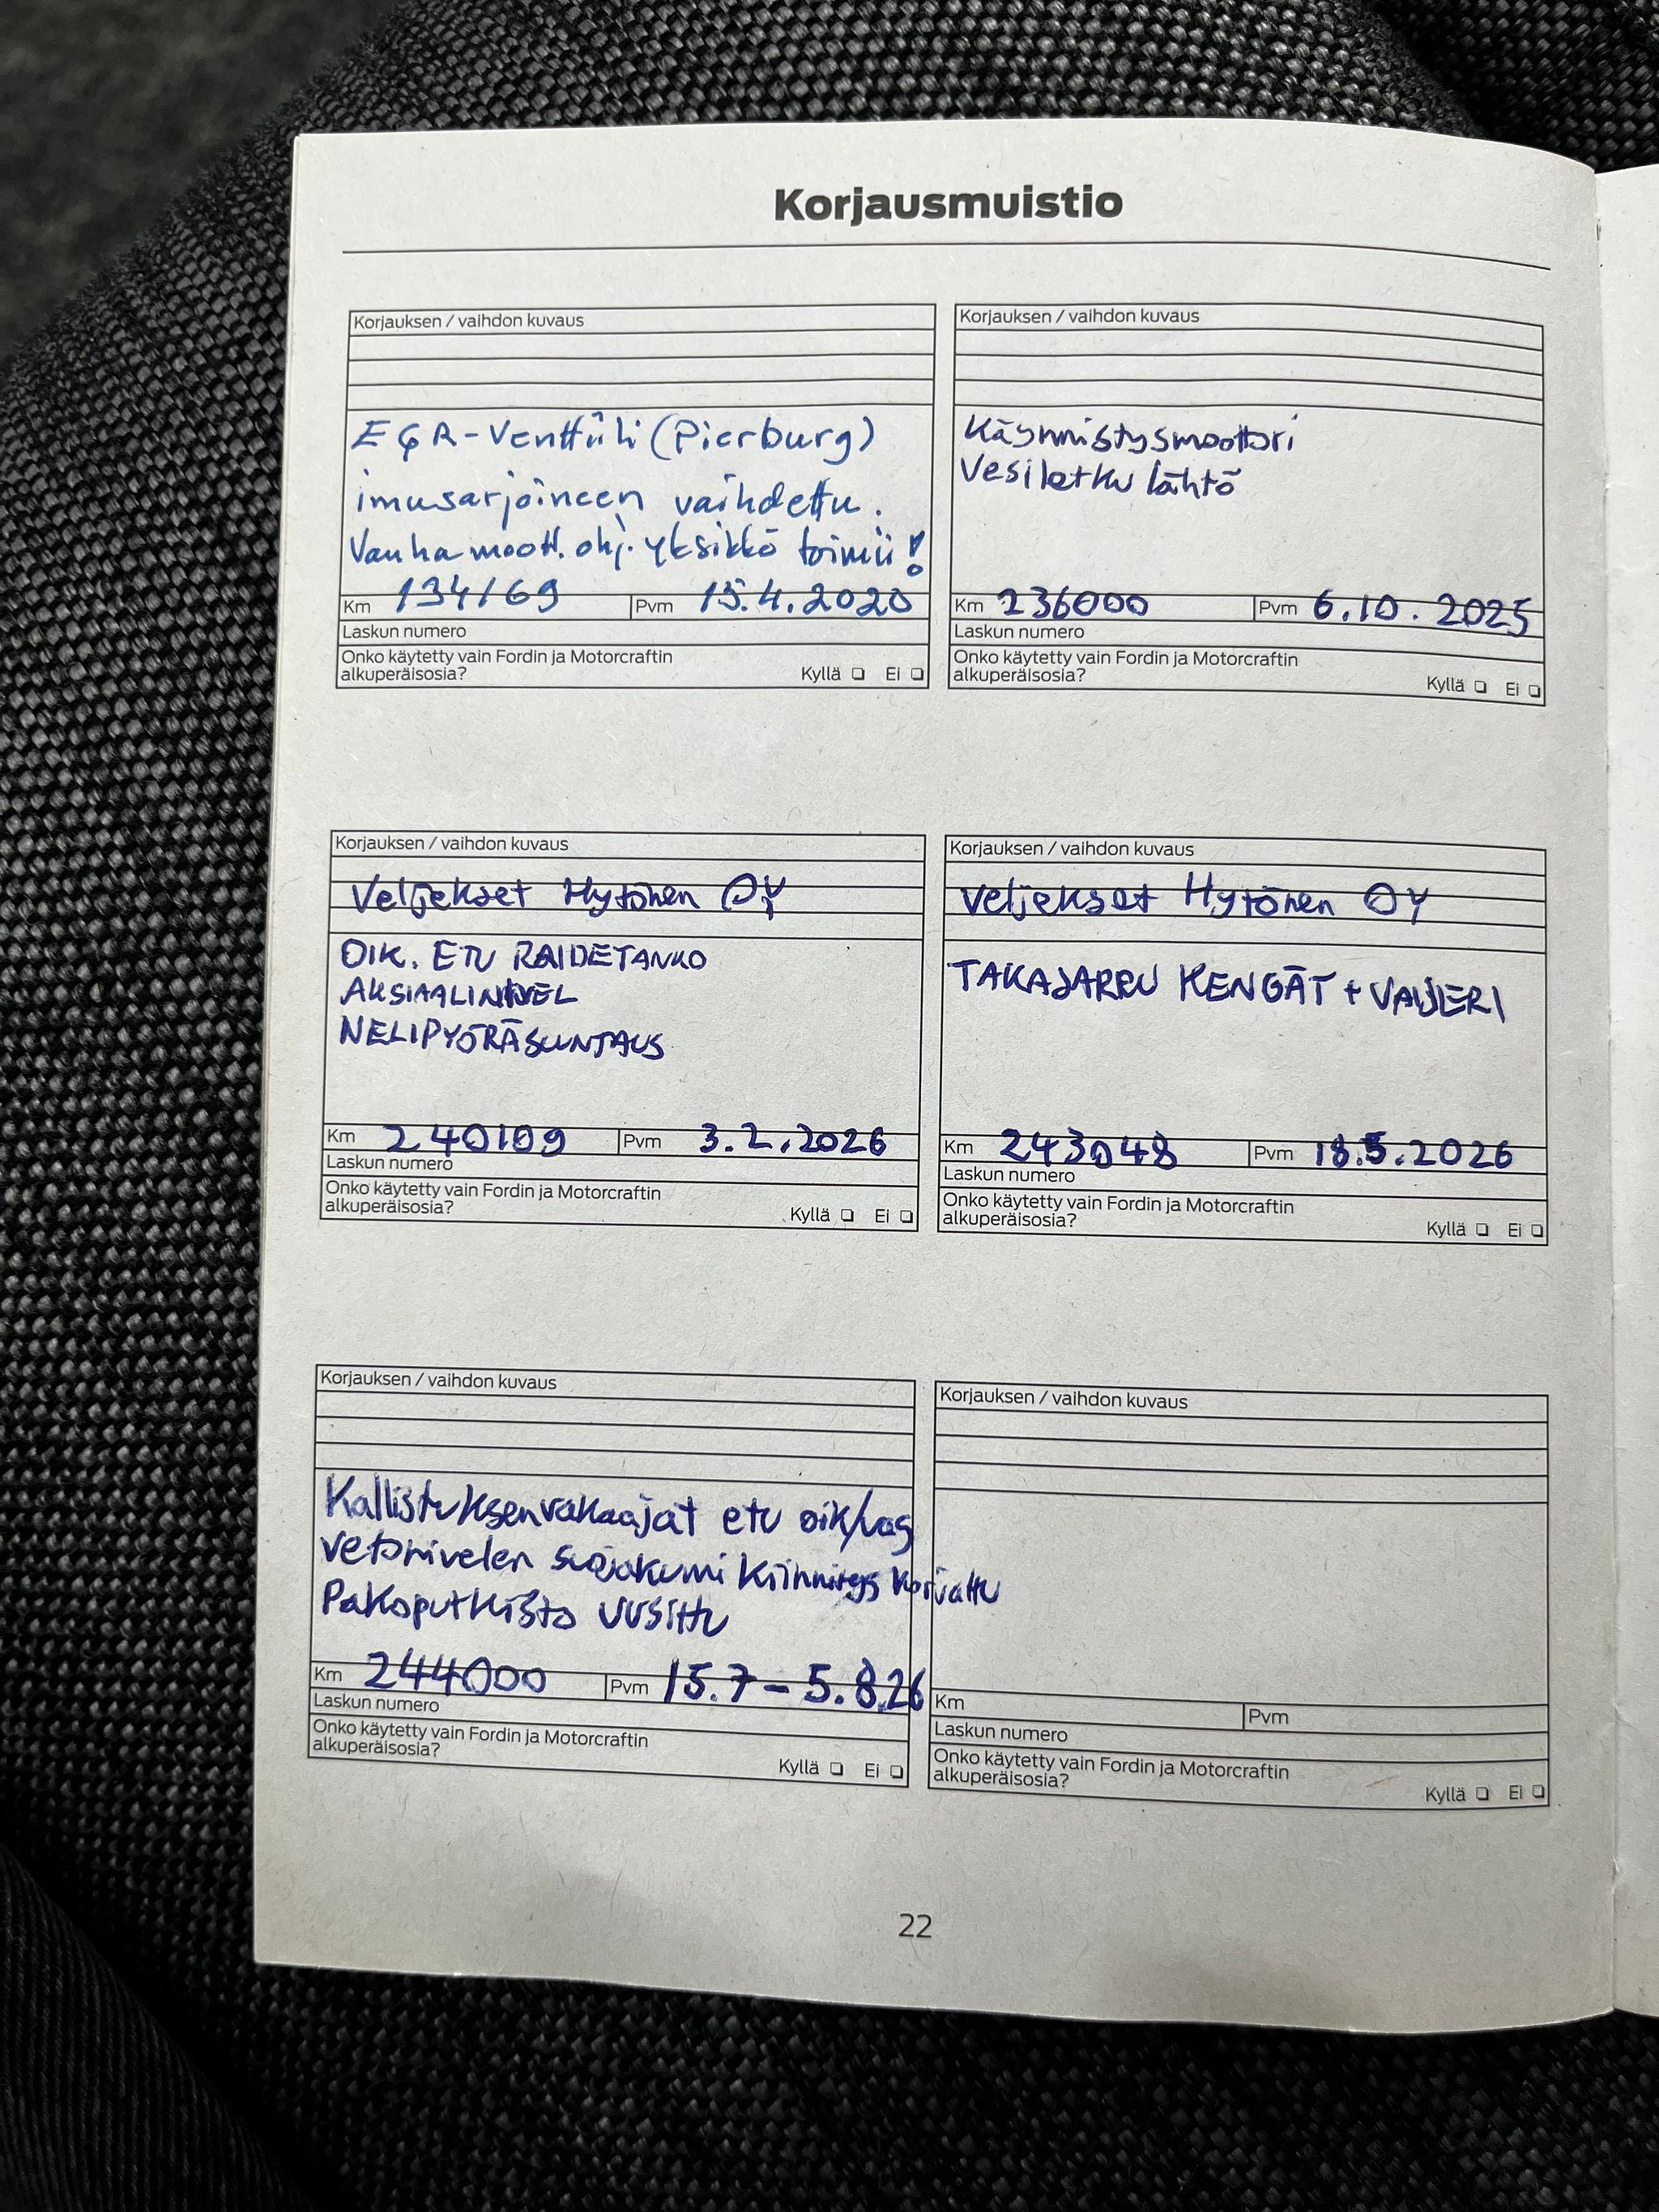 Korjausmuistio
Korjauksen / vaihdon kuvaus
EGR-Venttiili (Pierburg)
imusarjoineen vaihdettu.
Vanha moott. ohj. yksikkö toimii!
Km 134169 Pvm 15.4.2020
Laskun numero
Onko käytetty vain Fordin ja Motorcraftin
alkuperäisosia? Kyllä Ei
Korjauksen / vaihdon kuvaus
Käynnistysmoottori
Vesiletku lähtö
Km 236000 Pvm 6.10.2025
Laskun numero
Onko käytetty vain Fordin ja Motorcraftin
alkuperäisosia? Kyllä Ei
Korjauksen / vaihdon kuvaus
Veljekset Hytönen OY
OIK. ETU RAIDETANKO
AKSIAALINIVEL
NELIPYÖRÄSUUNTAUS
Km 240109 Pvm 3.2.2026
Laskun numero
Onko käytetty vain Fordin ja Motorcraftin
alkuperäisosia? Kyllä Ei
Korjauksen / vaihdon kuvaus
Veljekset Hytönen OY
TAKAJARRU KENGÄT + VAIJERI
Km 243048 Pvm 18.5.2026
Laskun numero
Onko käytetty vain Fordin ja Motorcraftin
alkuperäisosia? Kyllä Ei
Korjauksen / vaihdon kuvaus
Kallistuksenvakaajat etu oik/vas
vetonivelen suojakumi kiinnitys korjattu
Pakoputkisto uusittu
Km 244000 Pvm 15.7 - 5.8.26
Laskun numero
Onko käytetty vain Fordin ja Motorcraftin
alkuperäisosia? Kyllä Ei
Korjauksen / vaihdon kuvaus
Km Pvm
Laskun numero
Onko käytetty vain Fordin ja Motorcraftin
alkuperäisosia? Kyllä Ei
22